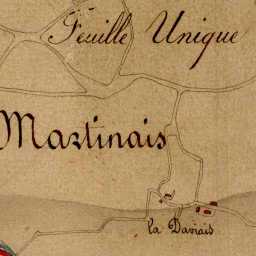 Feuille Unique
Martinais
la Daviais